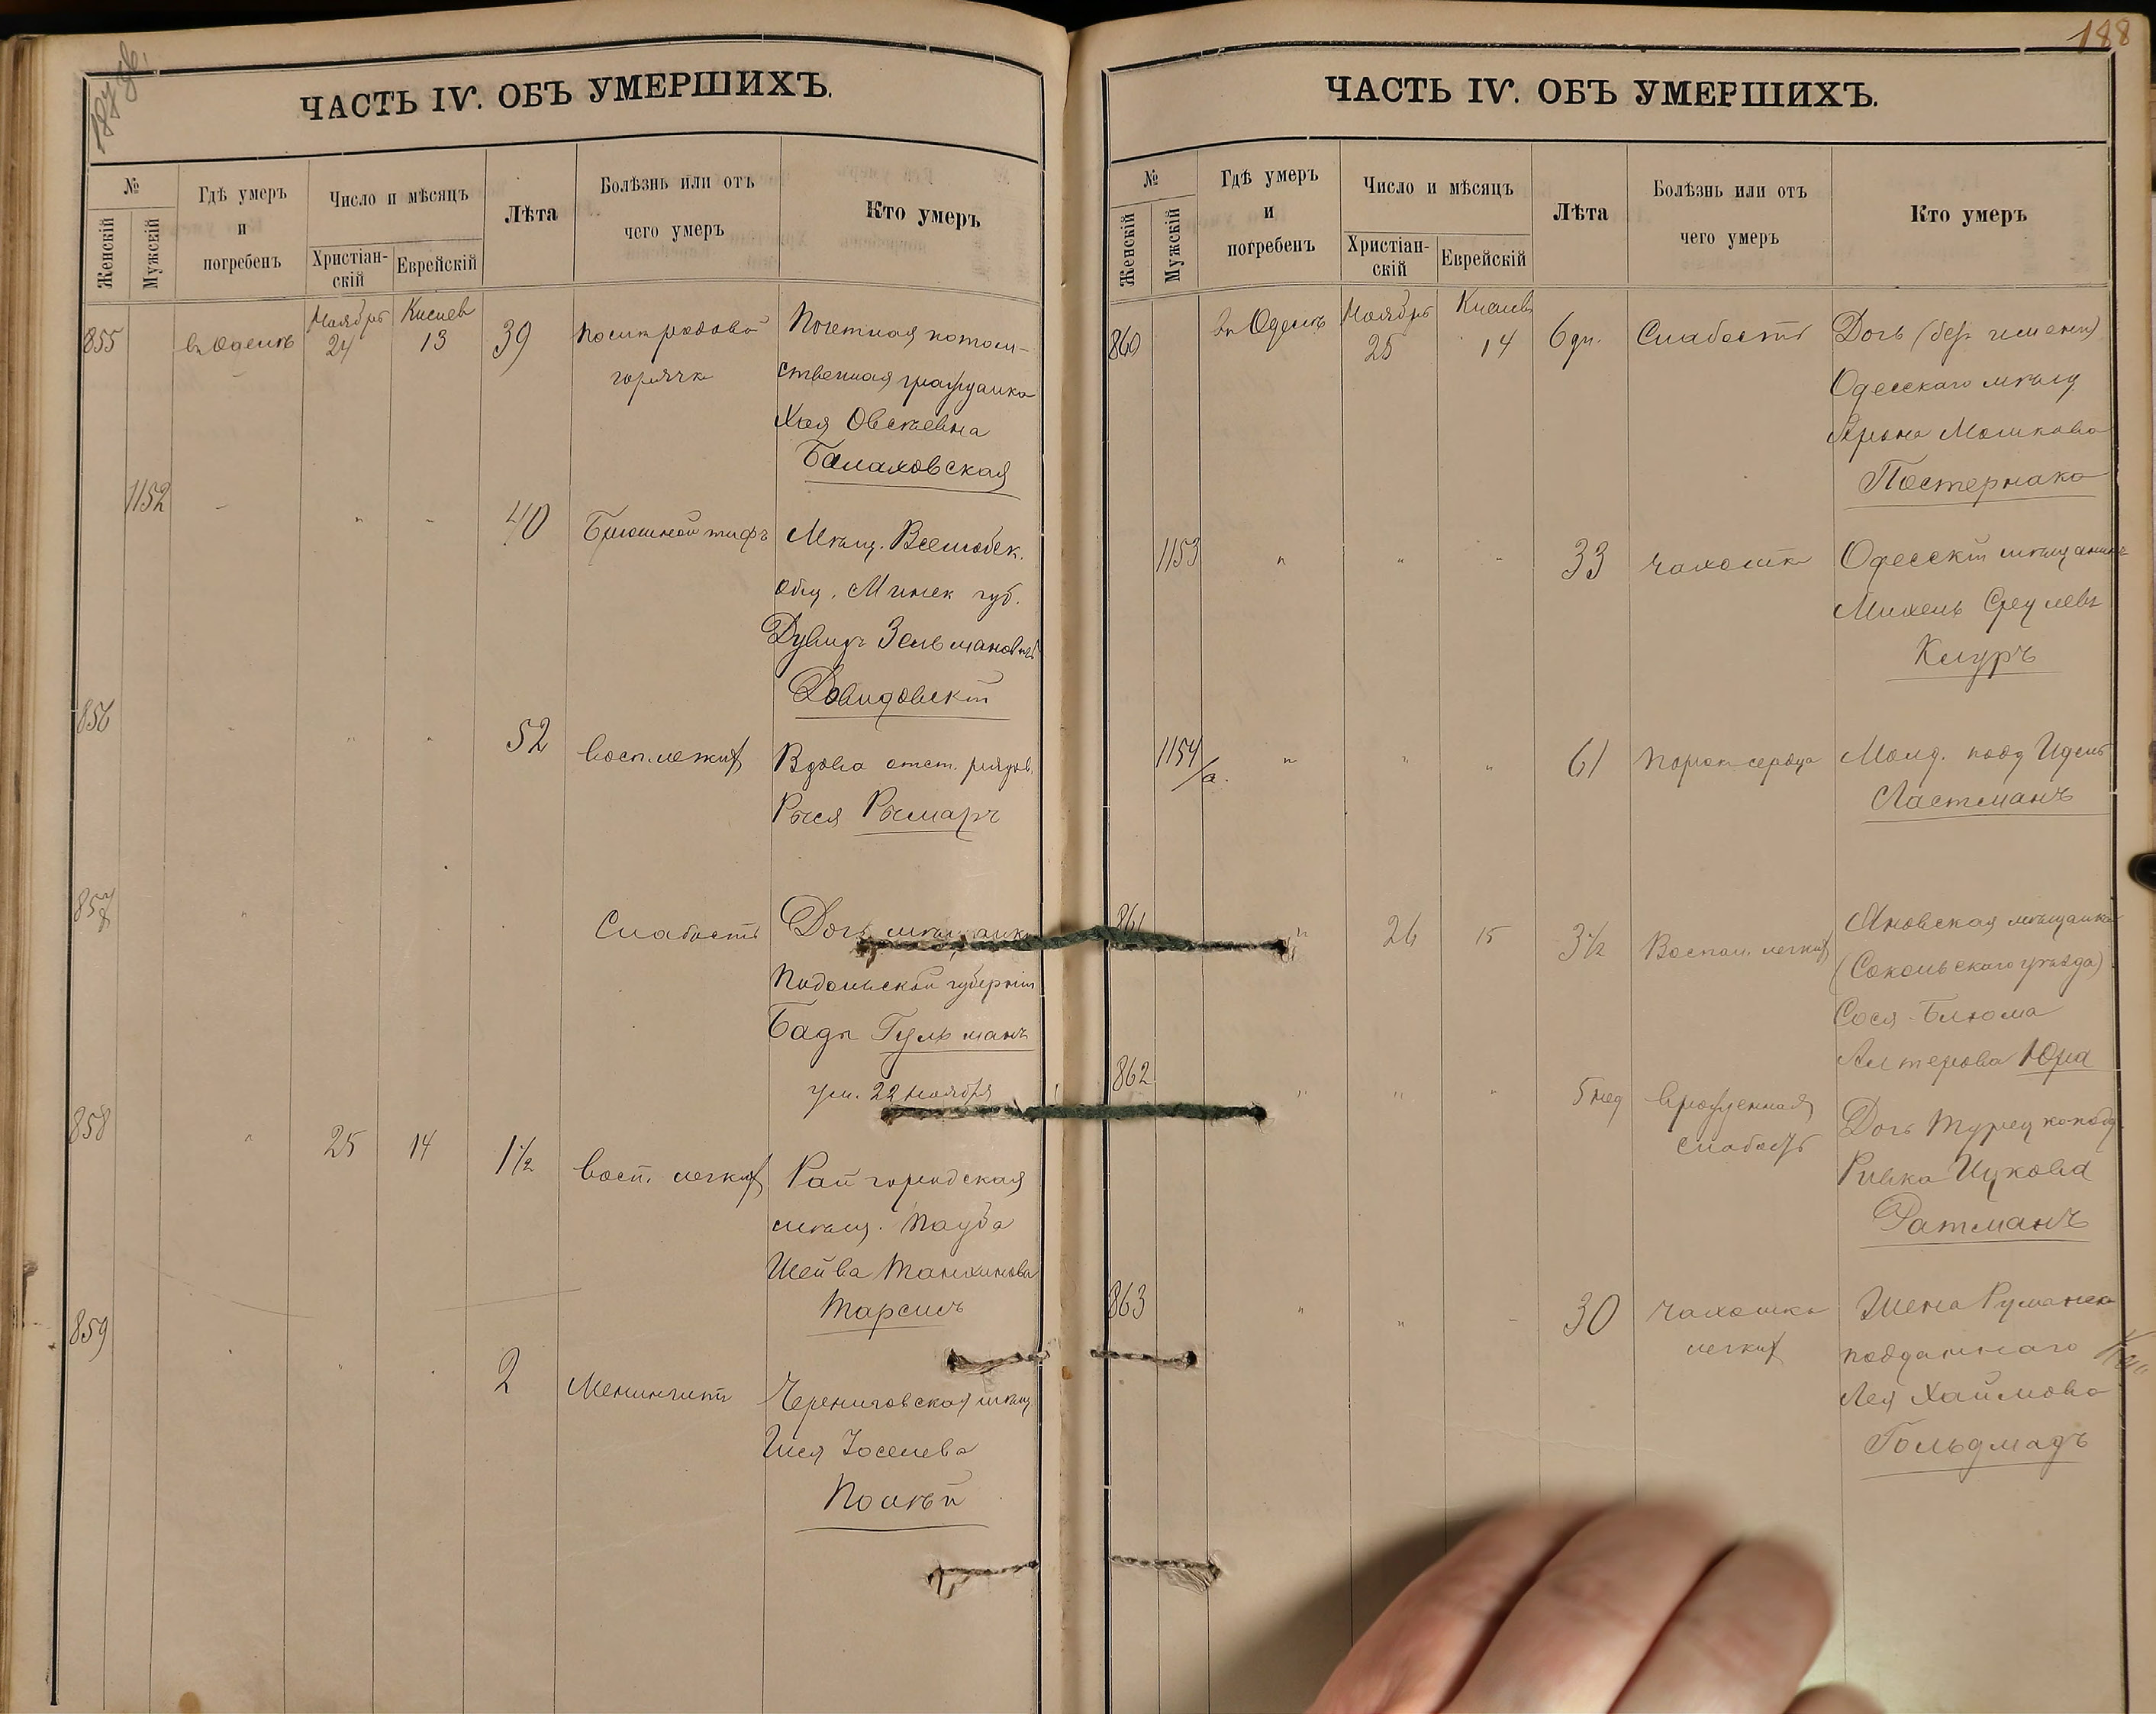 188
ЧАСТЬ IV. ОБЪ УМЕРШИХЪ.
№
Женскій
Мужскій
Гдѣ умеръ
и
погребенъ
Число и мѣсяцъ
Христіан-
скій
Еврейскій
Лѣта
Болѣзнь или отъ
чего умеръ
Кто умеръ
855
въ Одессѣ
Ноябрь
24
Кислев
13
39
послѣродовая
горячка
Почетная потом-
ственная гражданка
Хая Овсѣевна
Балаховская
1152
40
Брюшной тифъ
Мѣщ. Вселюбск.
общ. Минск губ.
Дувидъ Зельмановъ
Давидовскій
856
52
Восп. легких
Вдова отст. рядов.
Рыся Рымаръ
857
Слабость
Дочь мѣщанки
Подольской губерніи
Гульманъ
ум. 22 ноября
858
25
14
1 1/2
Восп. легких
Райгородская
мѣщ. Тауба
Шейва Танхимова
Тарсисъ
859
2
Менингит
Черниговская мѣщ
Шея Іоселева
ЧАСТЬ IV. ОБЪ УМЕРШИХЪ.
№
Женскій
Мужскій
Гдѣ умеръ
и
погребенъ
Число и мѣсяцъ
Христіан-
скій
Еврейскій
Лѣта
Болѣзнь или отъ
чего умеръ
Кто умеръ
860
въ Одессѣ
Ноябрь
25
Кислев
14
6 дн.
Слабость
Дочь (без имени)
Одесскаго мѣщ
Арона Мошкова
Постернака
1153
33
чахотка
Одесскій мѣщанинъ
Михель Срулевъ
Клуръ
1154/а.
61
Порок сердца
Молд. подд Идель
Ластманъ
861
26
15
3 1/2
Воспал. легких
Яновская мѣщанка
(Сокольскаго уѣзда)
Сося-Блюма
Алтерова Юра
862
5 нед
Врожденная
слабость
Дочь Турец. подд.
Ривка Ицкова
Ратманъ
863
30
Чахотка
легких
Жена Румынск
подданнаго
Лея Хаймова
Гольдмадъ